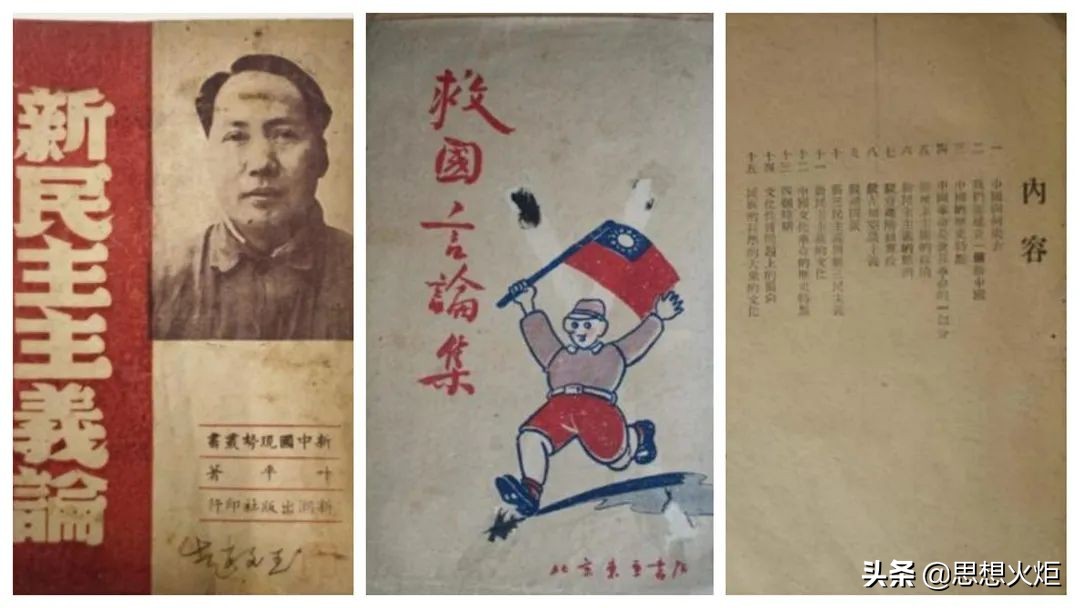 新民主主義論
新中國現勢叢書
叶平著
新潮出版社印行
救國言論集
北京東亞書店
內容
一 中國向何處去
二 我們要建立一個新中國
三 中國的歷史特點
四 中國革命是世界革命的一部分
五 新民主主義的政治
六 新民主主義的經濟
七 駁資產階級專政
八 駁左傾空談主義
九 駁頑固派
十 舊三民主義與新三民主義
十一 新民主主義的文化
十二 中國文化革命的歷史特點
十三 四個時期
十四 文化性質問題上的偏向
十五 民族的科學的大衆的文化
头条 @思想火炬